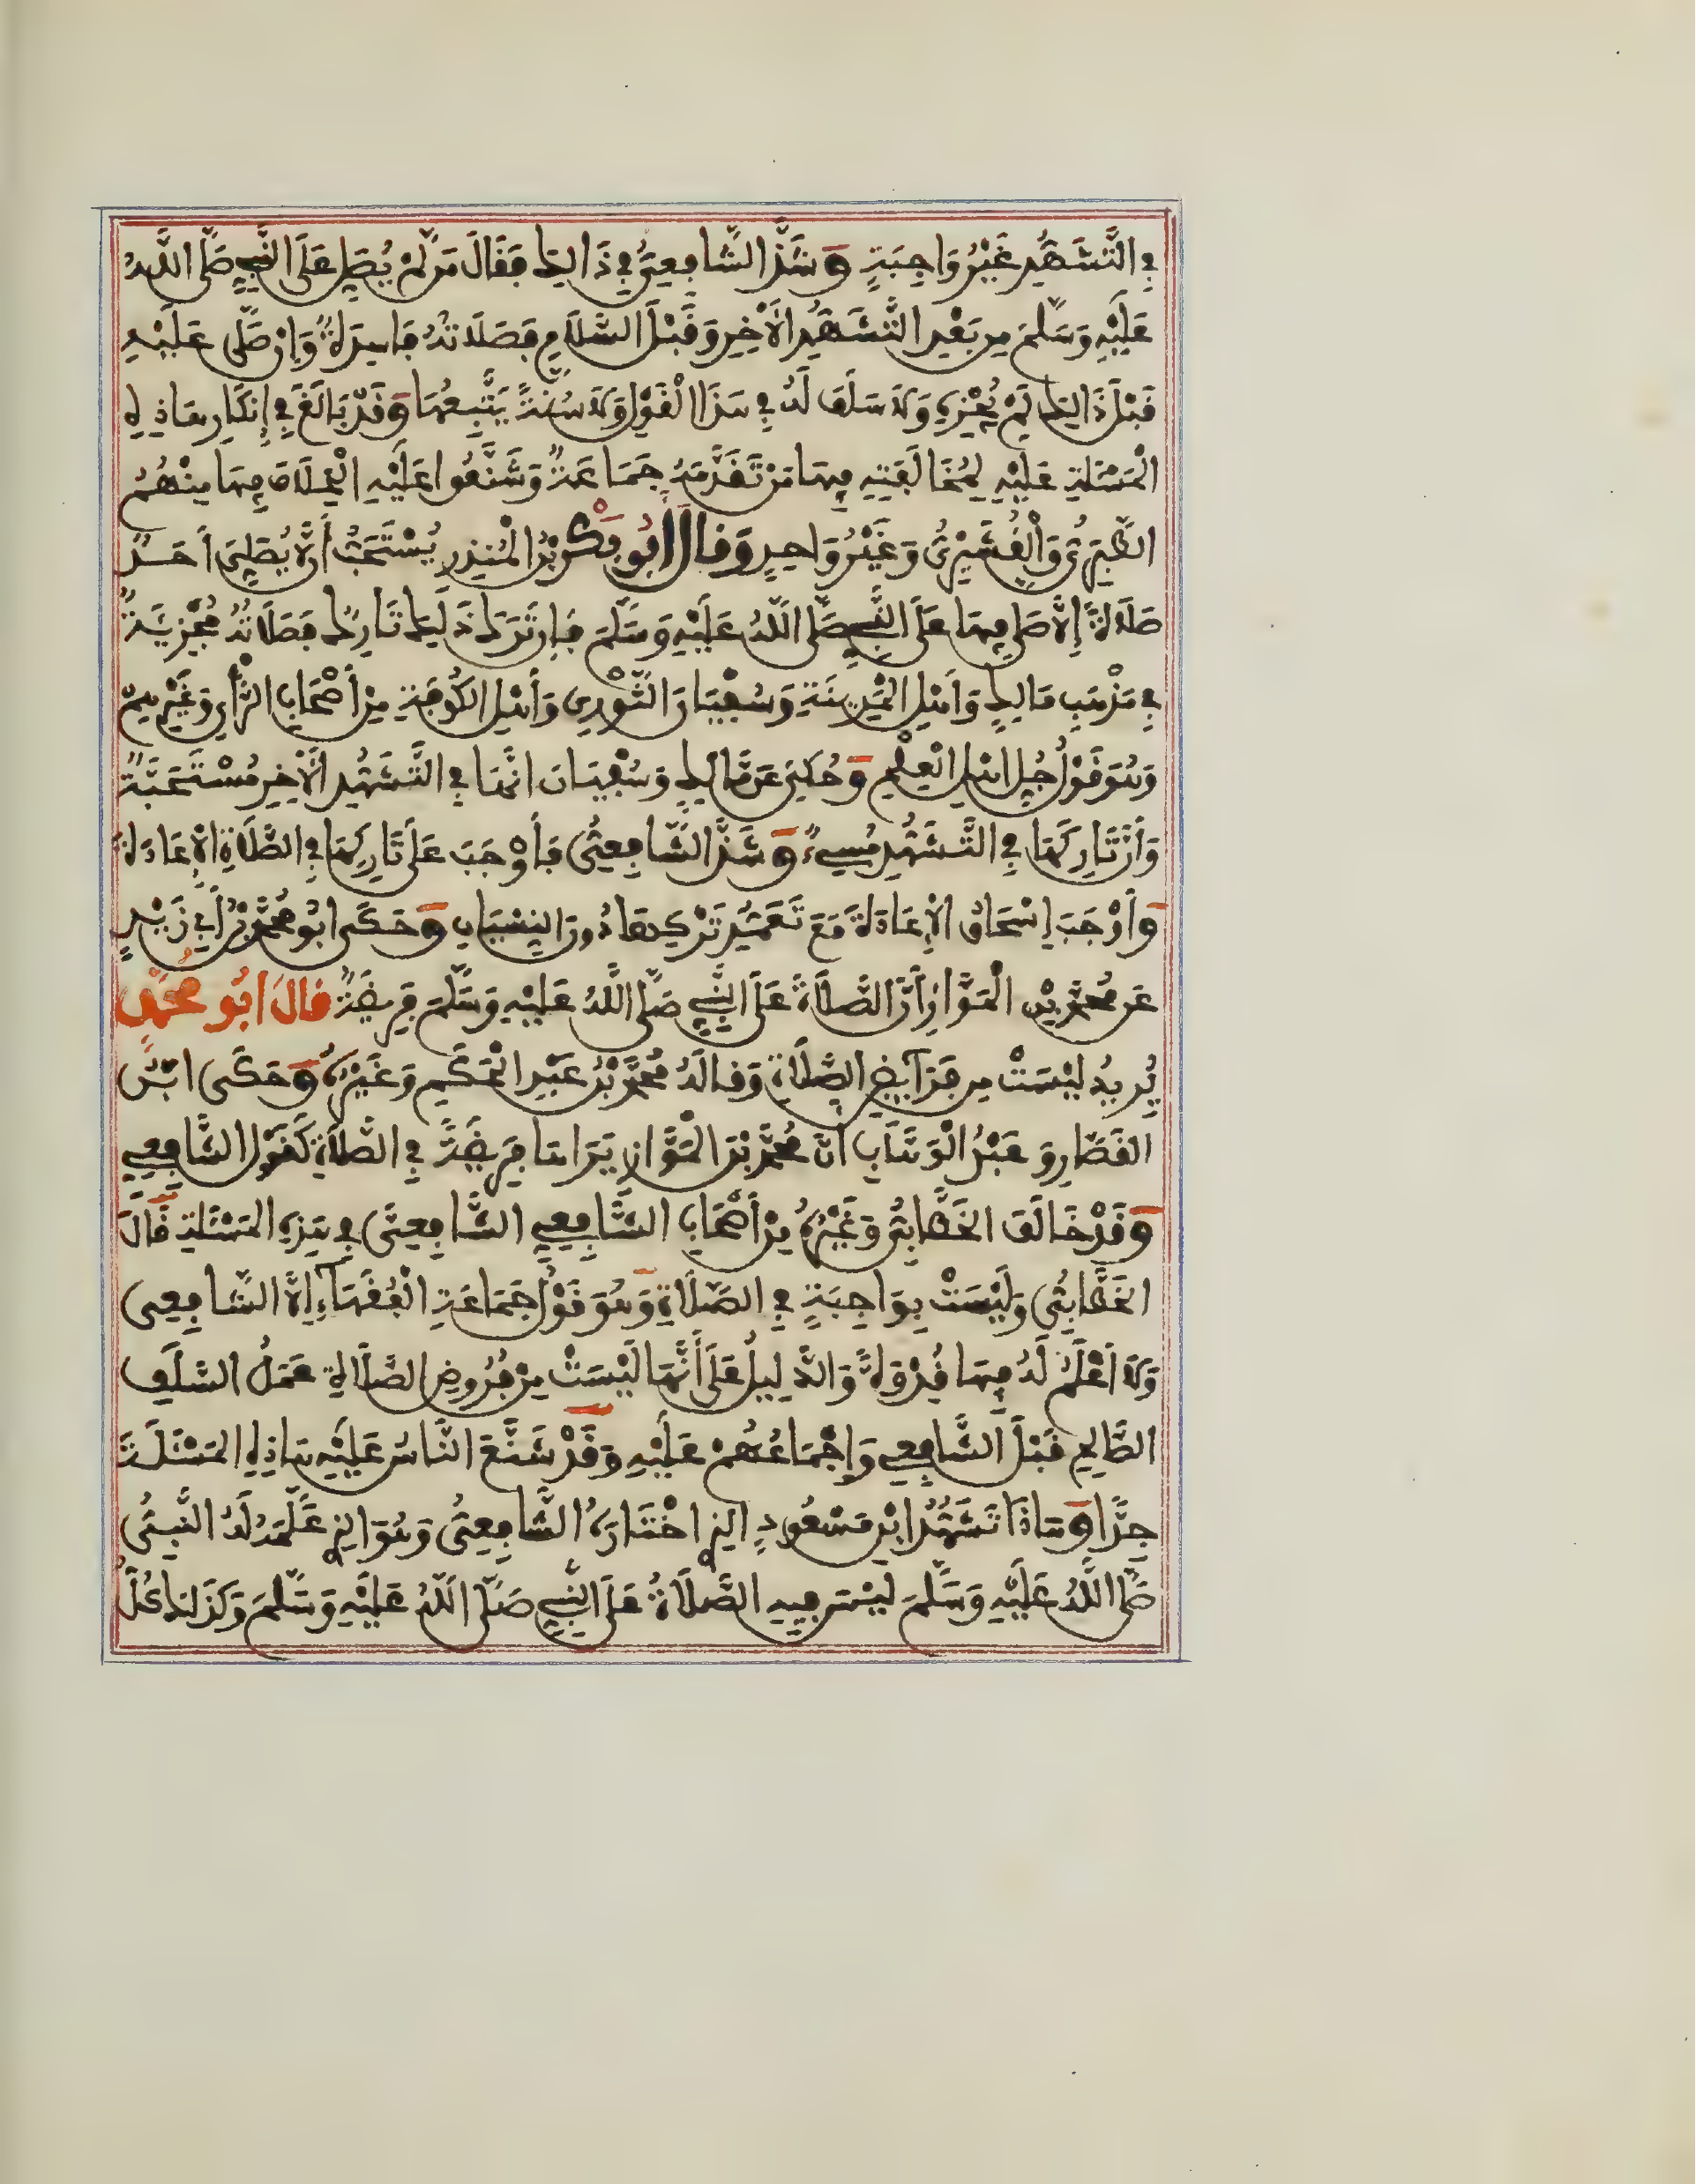 في التَّشَهُّدِ غَيْرُ وَاجِبَةٍ وَشَذَّ الشَّافِعِيُّ فِي ذَالِكَ فَقَالَ مَن لَّمْ يُصَلِّ عَلَى النَّبِيِّ صَلَّى اللَّهُ
عَلَيْهِ وَسَلَّمَ مِن بَعْدِ التَّشَهُّدِ الأَخِيرِ وَقَبْلَ السَّلَامِ فَصَلَاتُهُ فَاسِدَةٌ وَإِن صَلَّى عَلَيْهِ
قَبْلَ ذَالِكَ لَمْ يُجْزِهِ وَلَا سَلَفَ لَهُ فِي هَذَا الْقَوْلِ وَلَا سُنَّةً يَتَّبِعُهَا وَقَدْ بَالَغَ فِي إِنْكَارِ هَاذِهِ
الْمَسْئَلَةِ عَلَيْهِ لِمُخَالَفَتِهِ فِيهَا مَنْ تَقَدَّمَهُ جَمَاعَةٌ وَشَنَّعُوا عَلَيْهِ الْخِلَافَ فِيهَا مِنْهُمُ
الطَّبَرِيُّ وَالْقُشَيْرِيُّ وَغَيْرُ وَاحِدٍ وَقَالَ أَبُو بَكْرِ بْنُ الْمُنْذِرِ يُسْتَحَبُّ أَن لَّا يُصَلِّيَ أَحَدٌ
صَلَاةً إِلَّا صَلَّى فِيهَا عَلَى النَّبِيِّ صَلَّى اللَّهُ عَلَيْهِ وَسَلَّمَ فَإِن تَرَكَ ذَلِكَ تَارِكٌ فَصَلَاتُهُ مُجْزِيَةٌ
فِي مَذْهَبِ مَالِكٍ وَأَهْلِ الْمَدِينَةِ وَسُفْيَانَ الثَّوْرِي وَأَهْلِ الكُوفَةِ مِنْ أَصْحَابِ الرَّأْيِ وَغَيْرِهِمْ
وَهُوَ قَوْلُ جُلِّ اهْلِ الْعِلْمِ وَحُكِيَ عَن مَّالِكٍ وَسُفْيَانَ انَّهَا فِي التَّشَهُّدِ الأَخِيرِ مُسْتَحَبَّةٌ
وَأَنَّ تَارِكَهَا فِي التَّشَهُّدِ مُسِيءٌ وَشَذَّ الشَّافِعِيُّ فَأَوْجَبَ عَلَى تَارِكِهَا فِي الصَّلَاةِ الإِعَادَةَ
وَأَوْجَبَ إِسْحَاقُ الْإِعَادَةَ مَعَ تَعَمُّدِ تَرْكِهَا دُونَ النِّسْيَانِ وَحَكَى ابُو مُحَمَّدِ بْنُ أَبِي زَيْدٍ
عَن مُحَمَّدِ بْنِ الْمَوَّازِ أَنَّ الصَّلَاةَ عَلَى النَّبِيِّ صَلَّى اللَّهُ عَلَيْهِ وَسَلَّمَ فَرِيضَةٌ قَالَ ابُو مُحَمَّدٍ
يُرِيدُ لَيْسَتْ مِن فَرَآئِضِ الصَّلَاةِ وَقَالَهُ مُحَمَّدُ بْنُ عَبْدِ الْحَكَمِ وَغَيْرُهُ وَحَكَى ابْنُ
القَصَّارِ وَعَبْدُ الْوَهَّابِ أَنَّ مُحَمَّدَ بْنَ الْمَوَّازِ يَرَاهَا فَرِيضَةً فِي الصَّلَاةِ كَقَوْلِ الشَّافِعِيِّ
وَقَدْ خَالَفَ الخَطَّابِيُّ وَغَيْرُهُ مِنْ أَصْحَابِ الشَّافِعِيِّ الشَّافِعِيَّ فِي هَذِهِ المَسْئَلَةِ قَالَ
الخَطَّابِيُّ وَلَيْسَتْ بِوَاجِبَةٍ فِي الصَّلَاةِ وَهُوَ قَوْلُ جَمَاعَةِ الْفُقَهَآءِ إِلَّا الشَّافِعِيَّ
وَلَا أَعْلَمُ لَهُ فِيهَا قُدْوَةً وَالدَّلِيلُ عَلَى أَنَّهَا لَيْسَتْ مِنْ فُرُوضِ الصَّلَاةِ عَمَلُ السَّلَفِ
الصَّالِحِ قَبْلَ الشَّافِعِي وَإِجْمَاعُهُمْ عَلَيْهِ وَقَدْ شَنَّعَ النَّاسُ عَلَيْهِ هَاذِهِ المَسْئَلَةَ
جِدًّا وَهَاذَا تَشَهُّدُ ابْنِ مَسْعُودٍ الذِي اخْتَارَهُ الشَّافِعِيُّ وَهُوَ الذِي عَلَّمَهُ لَهُ النَّبِيُّ
صَلَّى اللَّهُ عَلَيْهِ وَسَلَّمَ لَيْسَ فِيهِ الصَّلَاةُ عَلَى النَّبِيِّ صَلَّى اللَّهُ عَلَيْهِ وَسَلَّمَ وَكَذَلِكَ كُلُّ